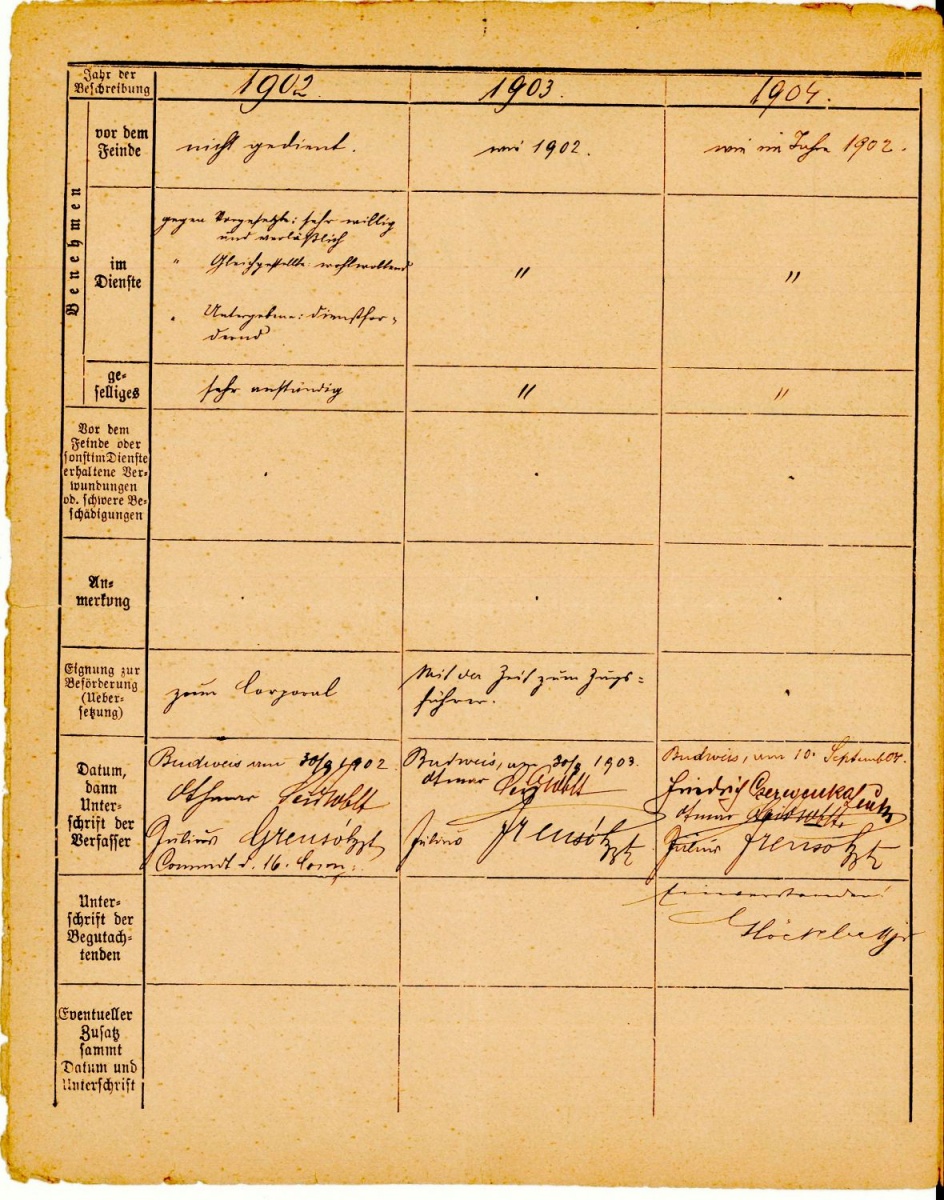 Jahr der
Beschreibung
1902.
1903.
1904.
Benehmen
vor dem
Feinde
nicht gedient.
wie 1902.
wie im Jahre 1902.
im
Dienste
gegen Vorgesetzte: sehr willig
und verläßlich
" Gleichgestellte: wohlwollend
" Untergebene: dienstfor-
dernd
"
"
ge-
selliges
sehr anständig
"
"
Vor dem
Feinde oder
sonst im Dienste
erhaltene Ver-
wundungen
od. schwere Be-
schädigungen
An-
merkung
Eignung zur
Beförderung
(Ueber-
setzung)
zum Corporal
Mit der Zeit zum Zugs-
führer.
Datum,
dann
Unter-
schrift der
Verfasser
Budweis am 30/9 1902.
Othmar
Julius
Commdt d. 16. Comp.
Budweis, am 30/9 1903.
Otmar
Julius
Budweis, am 10. September
Friedrich Czerwenka
Otmar
Julius
Unter-
schrift der
Begutach-
tenden
Einverstanden!
Eventueller
Zusatz
sammt
Datum und
Unterschrift